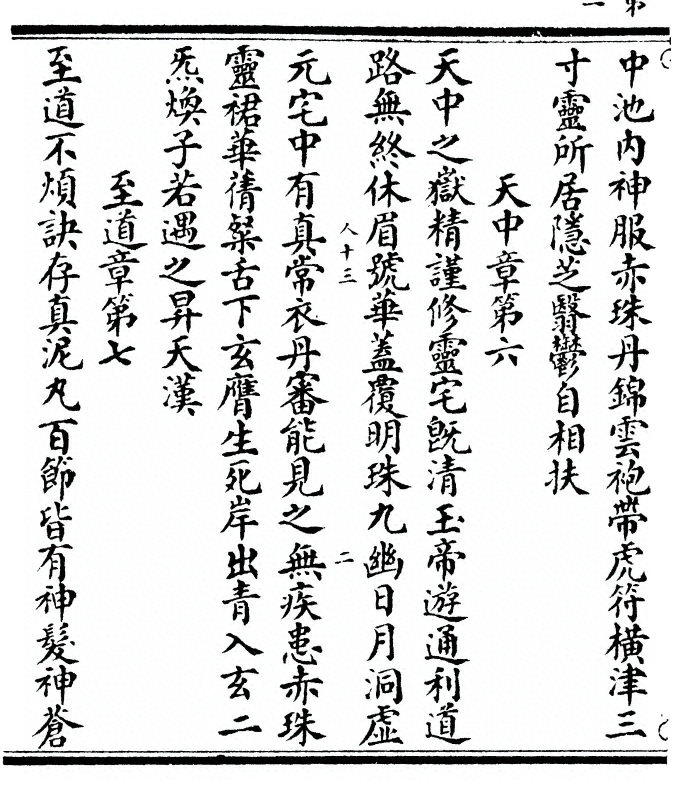 中池內神服赤珠丹錦雲袍帶虎符橫津三
寸靈所居隱芝翳鬱自相扶
天中章第六
天中之嶽精謹修靈宅旣清玉帝遊通利道
路無終休眉號華蓋覆明珠九幽日月洞虛
人十三
二
元宅中有真常衣丹審能見之無疾患赤珠
靈裙華蒨粲舌下玄膺生死岸出青入玄二
炁煥子若遇之昇天漢
至道章第七
至道不煩訣存真泥丸百節皆有神髮神蒼